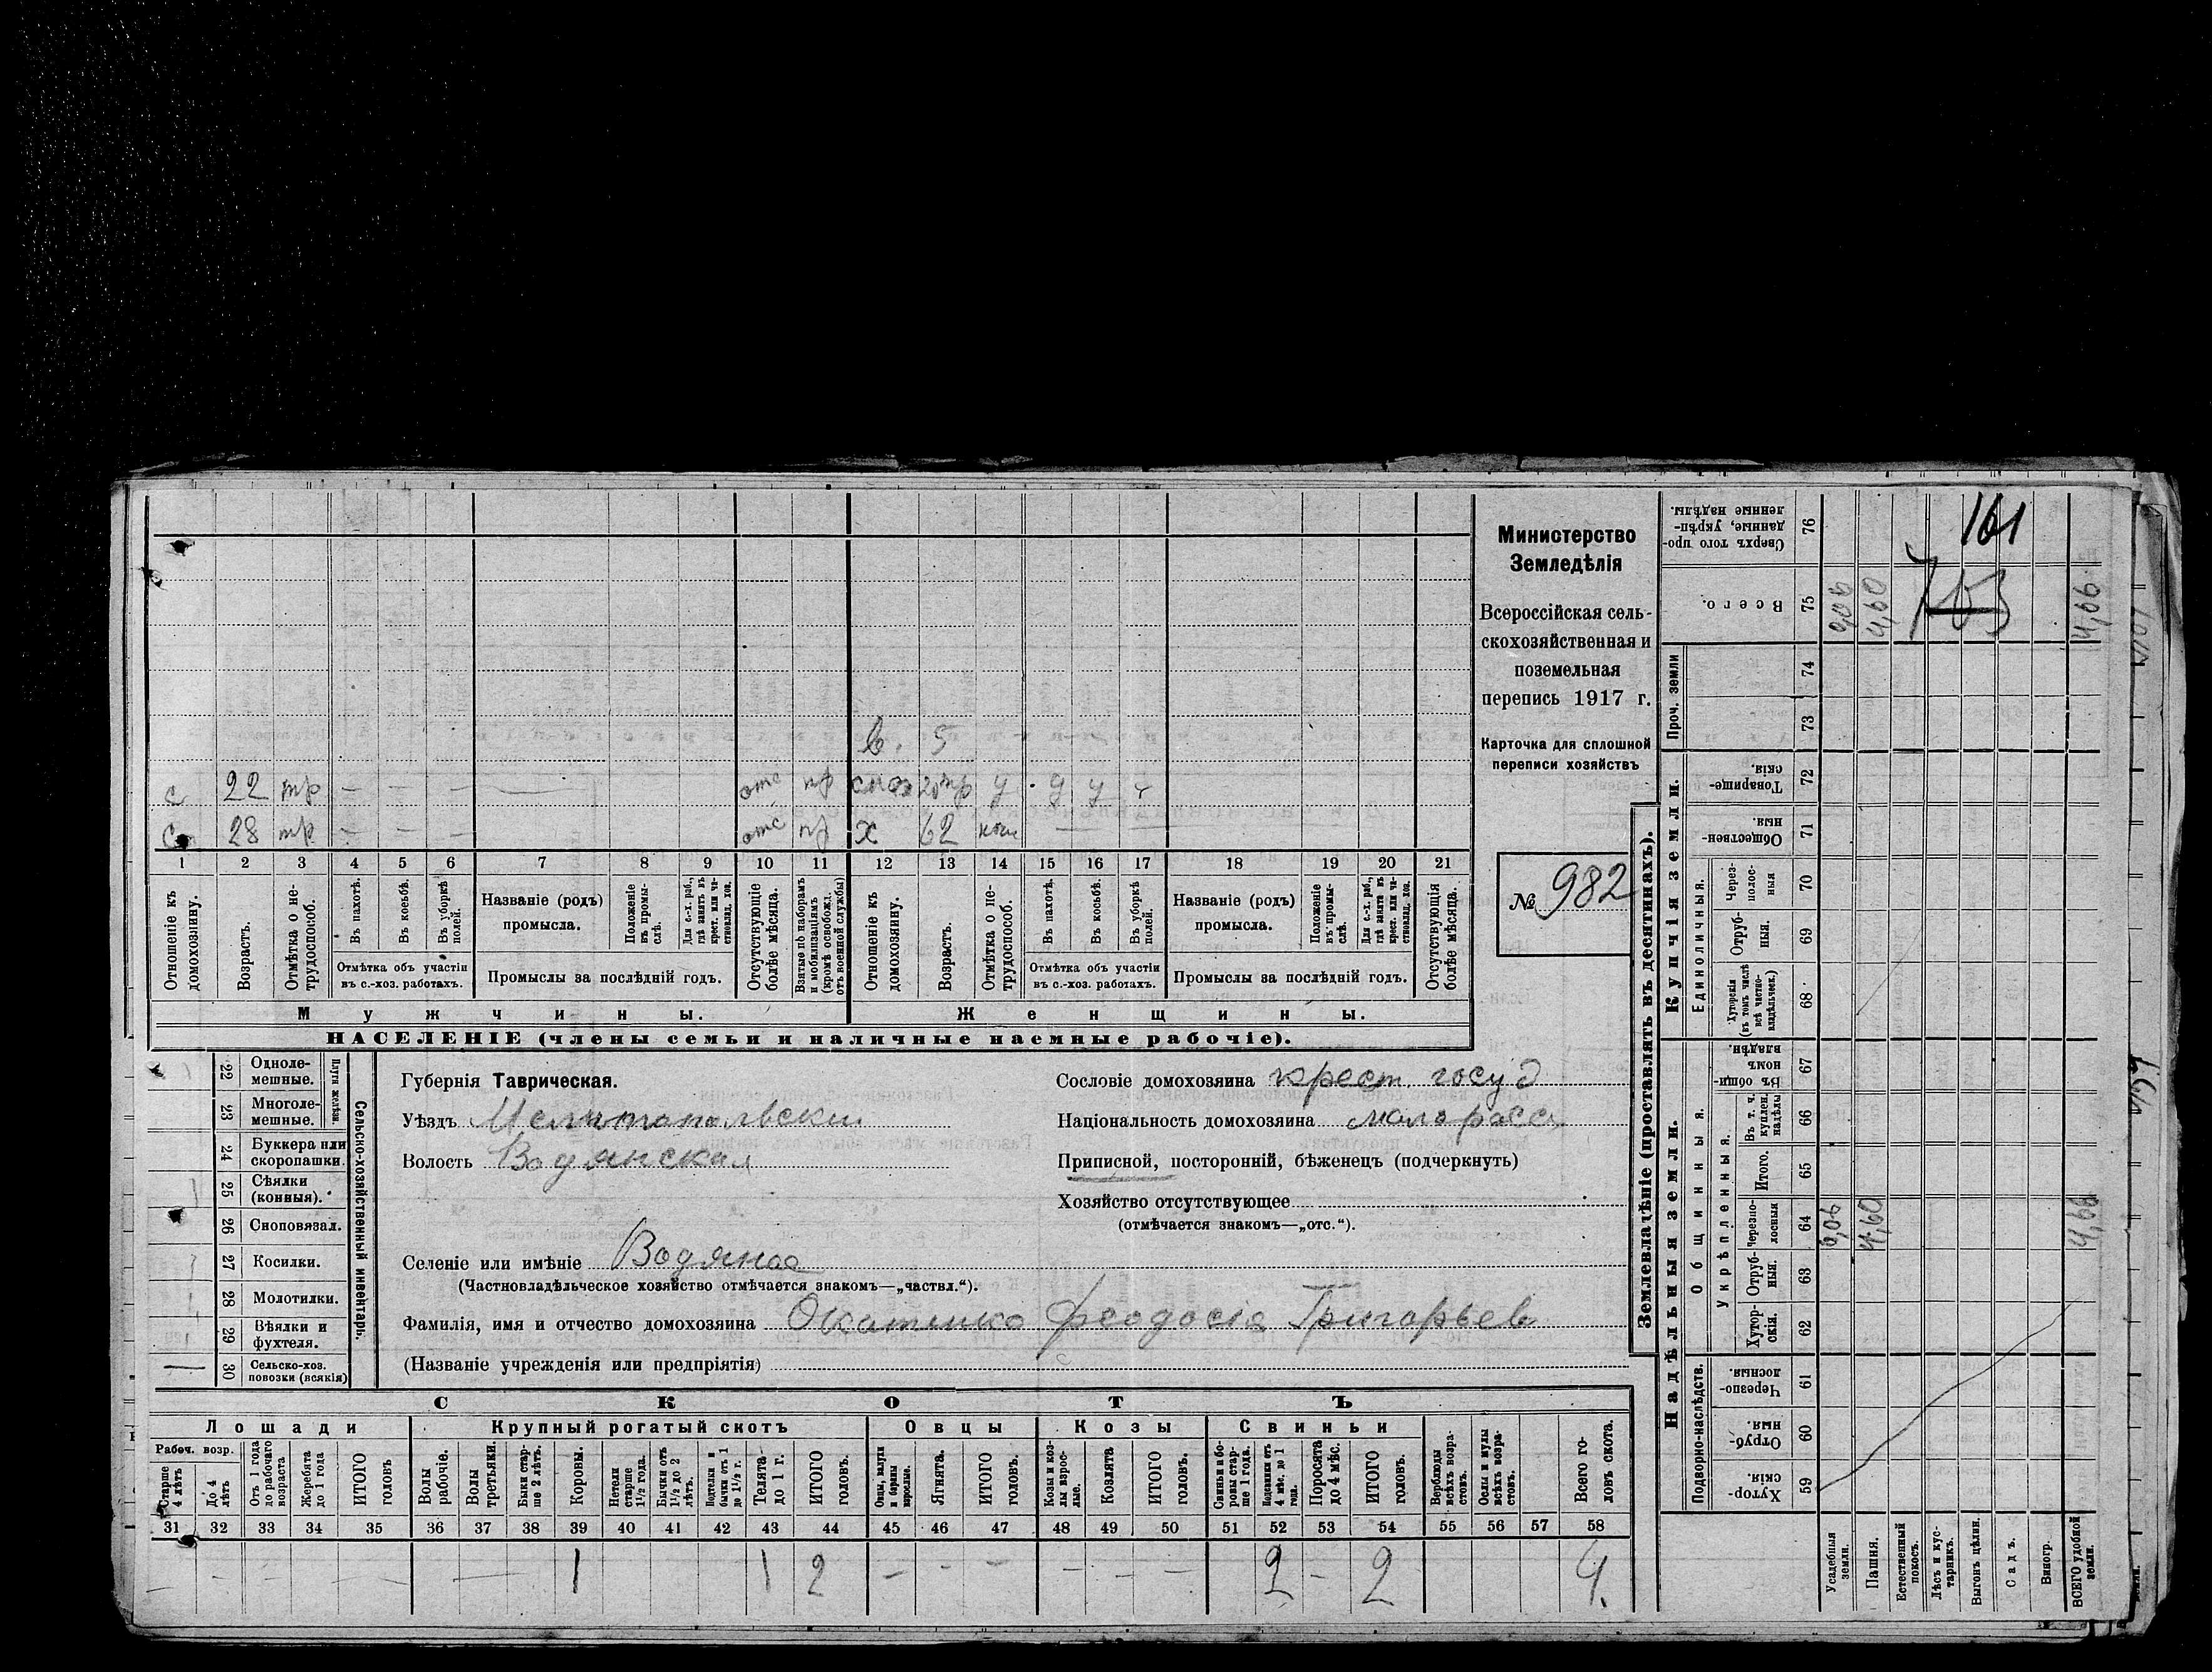 161
703
Министерство
Земледѣлія
Всероссійская сель-
скохозяйственная и
поземельная
перепись 1917 г.
Карточка для сплошной
переписи хозяйствъ
№ 982
в. 5
с 22 тр — — — — отс пр снох 20 тр у у у
с 28 тр — — — отс пр х 62 — —
1 2 3 4 5 6 7 8 9 10 11 12 13 14 15 16 17 18 19 20 21
Отношеніе къ домохозяину.
Возрастъ.
Отмѣтка о не-трудоспособ.
Въ пахотѣ.
Въ косьбѣ.
Въ уборкѣ полей.
Отмѣтка объ участіи
въ с.-хоз. работахъ.
Названіе (родъ)
промысла.
Положеніе въ промы-слѣ.
Для с.-х. раб., гдѣ занятъ въ крест. или ча-стновлад. хоз.
Промыслы за послѣдній годъ.
Отсутствующіе болѣе мѣсяца.
Взятые по наборамъ и мобилизаціямъ (кромѣ освобожд. отъ военной службы)
Отношеніе къ домохозяину.
Возрастъ.
Отмѣтка о не-трудоспособ.
Въ пахотѣ.
Въ косьбѣ.
Въ уборкѣ полей.
Отмѣтка объ участіи
въ с.-хоз. работахъ.
Названіе (родъ)
промысла.
Положеніе въ промы-слѣ.
Для с.-х. раб., гдѣ занятъ въ крест. или ча-стновлад. хоз.
Промыслы за послѣдній годъ.
Отсутствующія болѣе мѣсяца.
Мужчины.
Женщины.
НАСЕЛЕНІЕ (члены семьи и наличные наемные рабочіе).
Сельско-хозяйственный инвентарь.
Плуги желѣзн.
22 Одноле-мешные.
23 Многоле-мешные.
24 Буккера или скоропашки.
25 Сѣялки (конныя).
26 Сноповязал.
27 Косилки.
28 Молотилки.
29 Вѣялки и фухтеля.
30 Сельско-хоз. повозки (всякія)
Губернія Таврическая.
Уѣздъ Мелитопольскій
Волость Водянская
Сословіе домохозяина крест. госуд
Національность домохозяина малоросс
Приписной, посторонній, бѣженецъ (подчеркнуть)
Хозяйство отсутствующее
(отмѣчается знакомъ—„отс.“).
Селеніе или имѣніе Водяное
(Частновладѣльческое хозяйство отмѣчается знакомъ—„частвл.“).
Фамилія, имя и отчество домохозяина Феодосія Григорьев
(Названіе учрежденія или предпріятія)
СКОТЪ
Лошади
Крупный рогатый скотъ
Овцы
Козы
Свиньи
Рабоч. возр.
Старше 4 лѣтъ
До 4 лѣтъ
Отъ 1 года до рабочаго возраста
Жеребята до 1 года
ИТОГО головъ
Волы рабочіе.
Волы третьяки.
Быки стар-ше 2 лѣтъ.
Коровы.
Нетели старше 1½ года.
Бычки отъ 1½ до 2 лѣтъ.
Подтелки и бычки отъ 1 до 1½ г.
Телята до 1 г.
ИТОГО головъ.
Овцы, валухи и бараны взрослые.
Ягнята.
ИТОГО головъ.
Козы и коз-лы взрос-лые.
Козлята
ИТОГО головъ.
Свиньи и бо-ровы стар-ше 1 года.
Подсвинки отъ 4 мѣс. до 1 года.
Поросята до 4 мѣс.
ИТОГО головъ.
Верблюды всѣхъ возра-стовъ.
Ослы и мулы всѣхъ возра-стовъ.
Всего го-ловъ скота.
31 32 33 34 35 36 37 38 39 40 41 42 43 44 45 46 47 48 49 50 51 52 53 54 55 56 57 58
— — — — — — 1 1 2 — — — — — — 2 — 2 4.
Землевладѣніе (проставлять въ десятинахъ).
Надѣльныя земли.
Купчія земли.
Проч. земли
Подворно-наслѣдств.
Общинныя.
Укрѣпленныя.
Единоличныя.
Сверхъ того про-данные, укрѣп-ленные надѣлы. 76
Всего. 75
74
73
Товарище-скія. 72
Обществен-ныя. 71
Через-полос-ныя 70
Отруб-ныя. 69
Хуторскія (въ томъ числѣ всѣ частно-владѣльческ.) 68
Въ общин-номъ владѣн. 67
Въ т. ч. куплен. надѣлы 66
Итого. 65
Черезпо-лосныя 64
Отруб-ныя. 63
Хутор-скія. 62
Черезпо-лосныя. 61
Отруб-ныя. 60
Хутор-скія. 59
0,06 4,60 4,66
0,06 4,60 4,66
Усадебныя земли.
Пашня.
Естественный покосъ.
Лѣсъ и кус-тарникъ.
Выгонъ цѣлин.
Садъ.
Виногр.
ВСЕГО удобной земли.